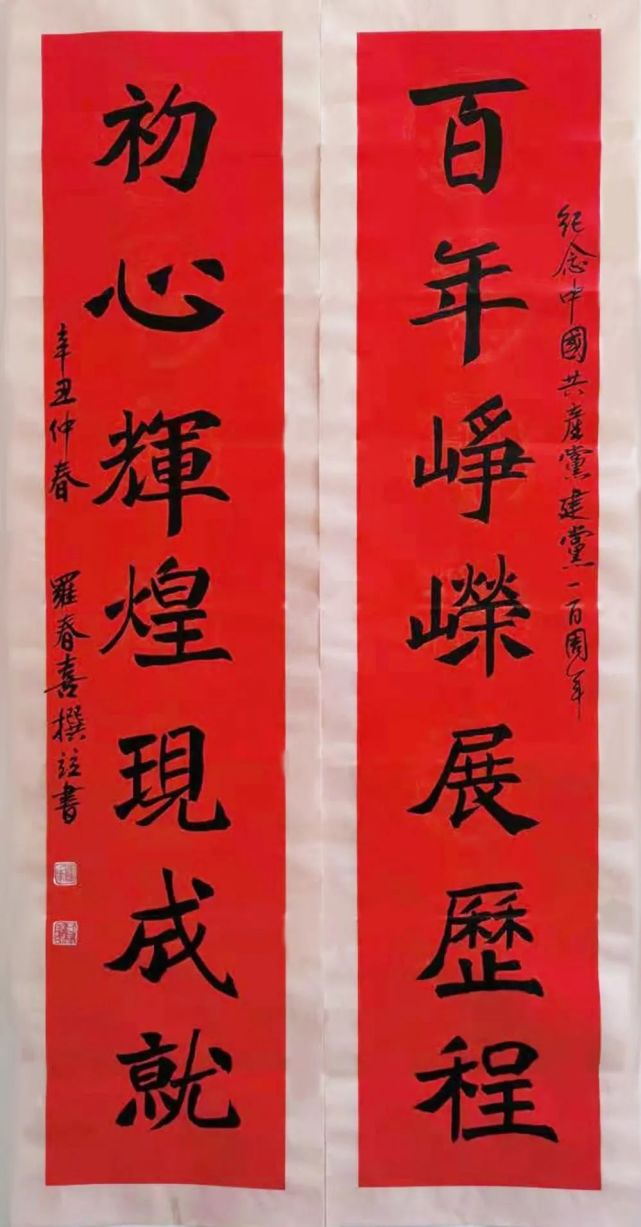 紀念中國共產黨建黨一百周年
百年崢嶸展歷程
初心輝煌現成就
辛丑仲春 羅春喜撰竝書